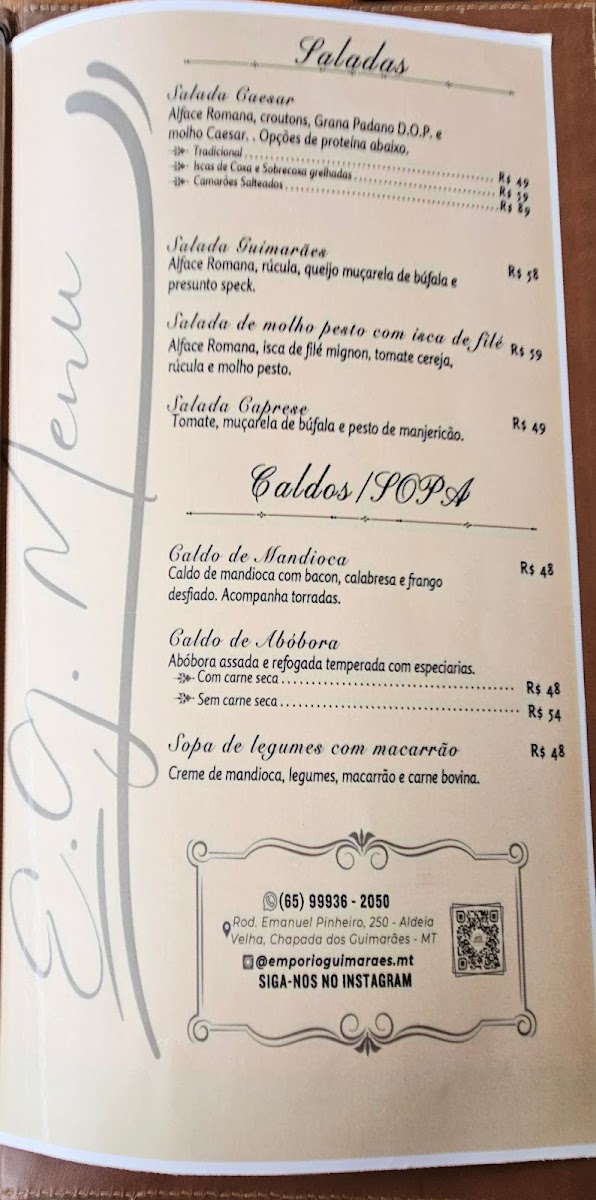 E.G. Menu
Saladas
Salada Caesar
Alface Romana, croutons, Grana Padano D.O.P. e
molho Caesar. . Opções de proteína abaixo.
Tradicional ........ R$ 49
Iscas de Coxa e Sobrecoxa grelhadas ........ R$ 59
Camarões Salteados ........ R$ 89
Salada Guimarães
Alface Romana, rúcula, queijo muçarela de búfala e R$ 58
presunto speck.
Salada de molho pesto com isca de filé R$ 59
Alface Romana, isca de filé mignon, tomate cereja,
rúcula e molho pesto.
Salada Caprese R$ 49
Tomate, muçarela de búfala e pesto de manjericão.
Caldos/SOPA
Caldo de Mandioca R$ 48
Caldo de mandioca com bacon, calabresa e frango
desfiado. Acompanha torradas.
Caldo de Abóbora
Abóbora assada e refogada temperada com especiarias.
Com carne seca ........ R$ 48
Sem carne seca ........ R$ 54
Sopa de legumes com macarrão R$ 48
Creme de mandioca, legumes, macarrão e carne bovina.
(65) 99936 - 2050
Rod. Emanuel Pinheiro, 250 - Aldeia
Velha, Chapada dos Guimarães - MT
@emporioguimaraes.mt
SIGA-NOS NO INSTAGRAM